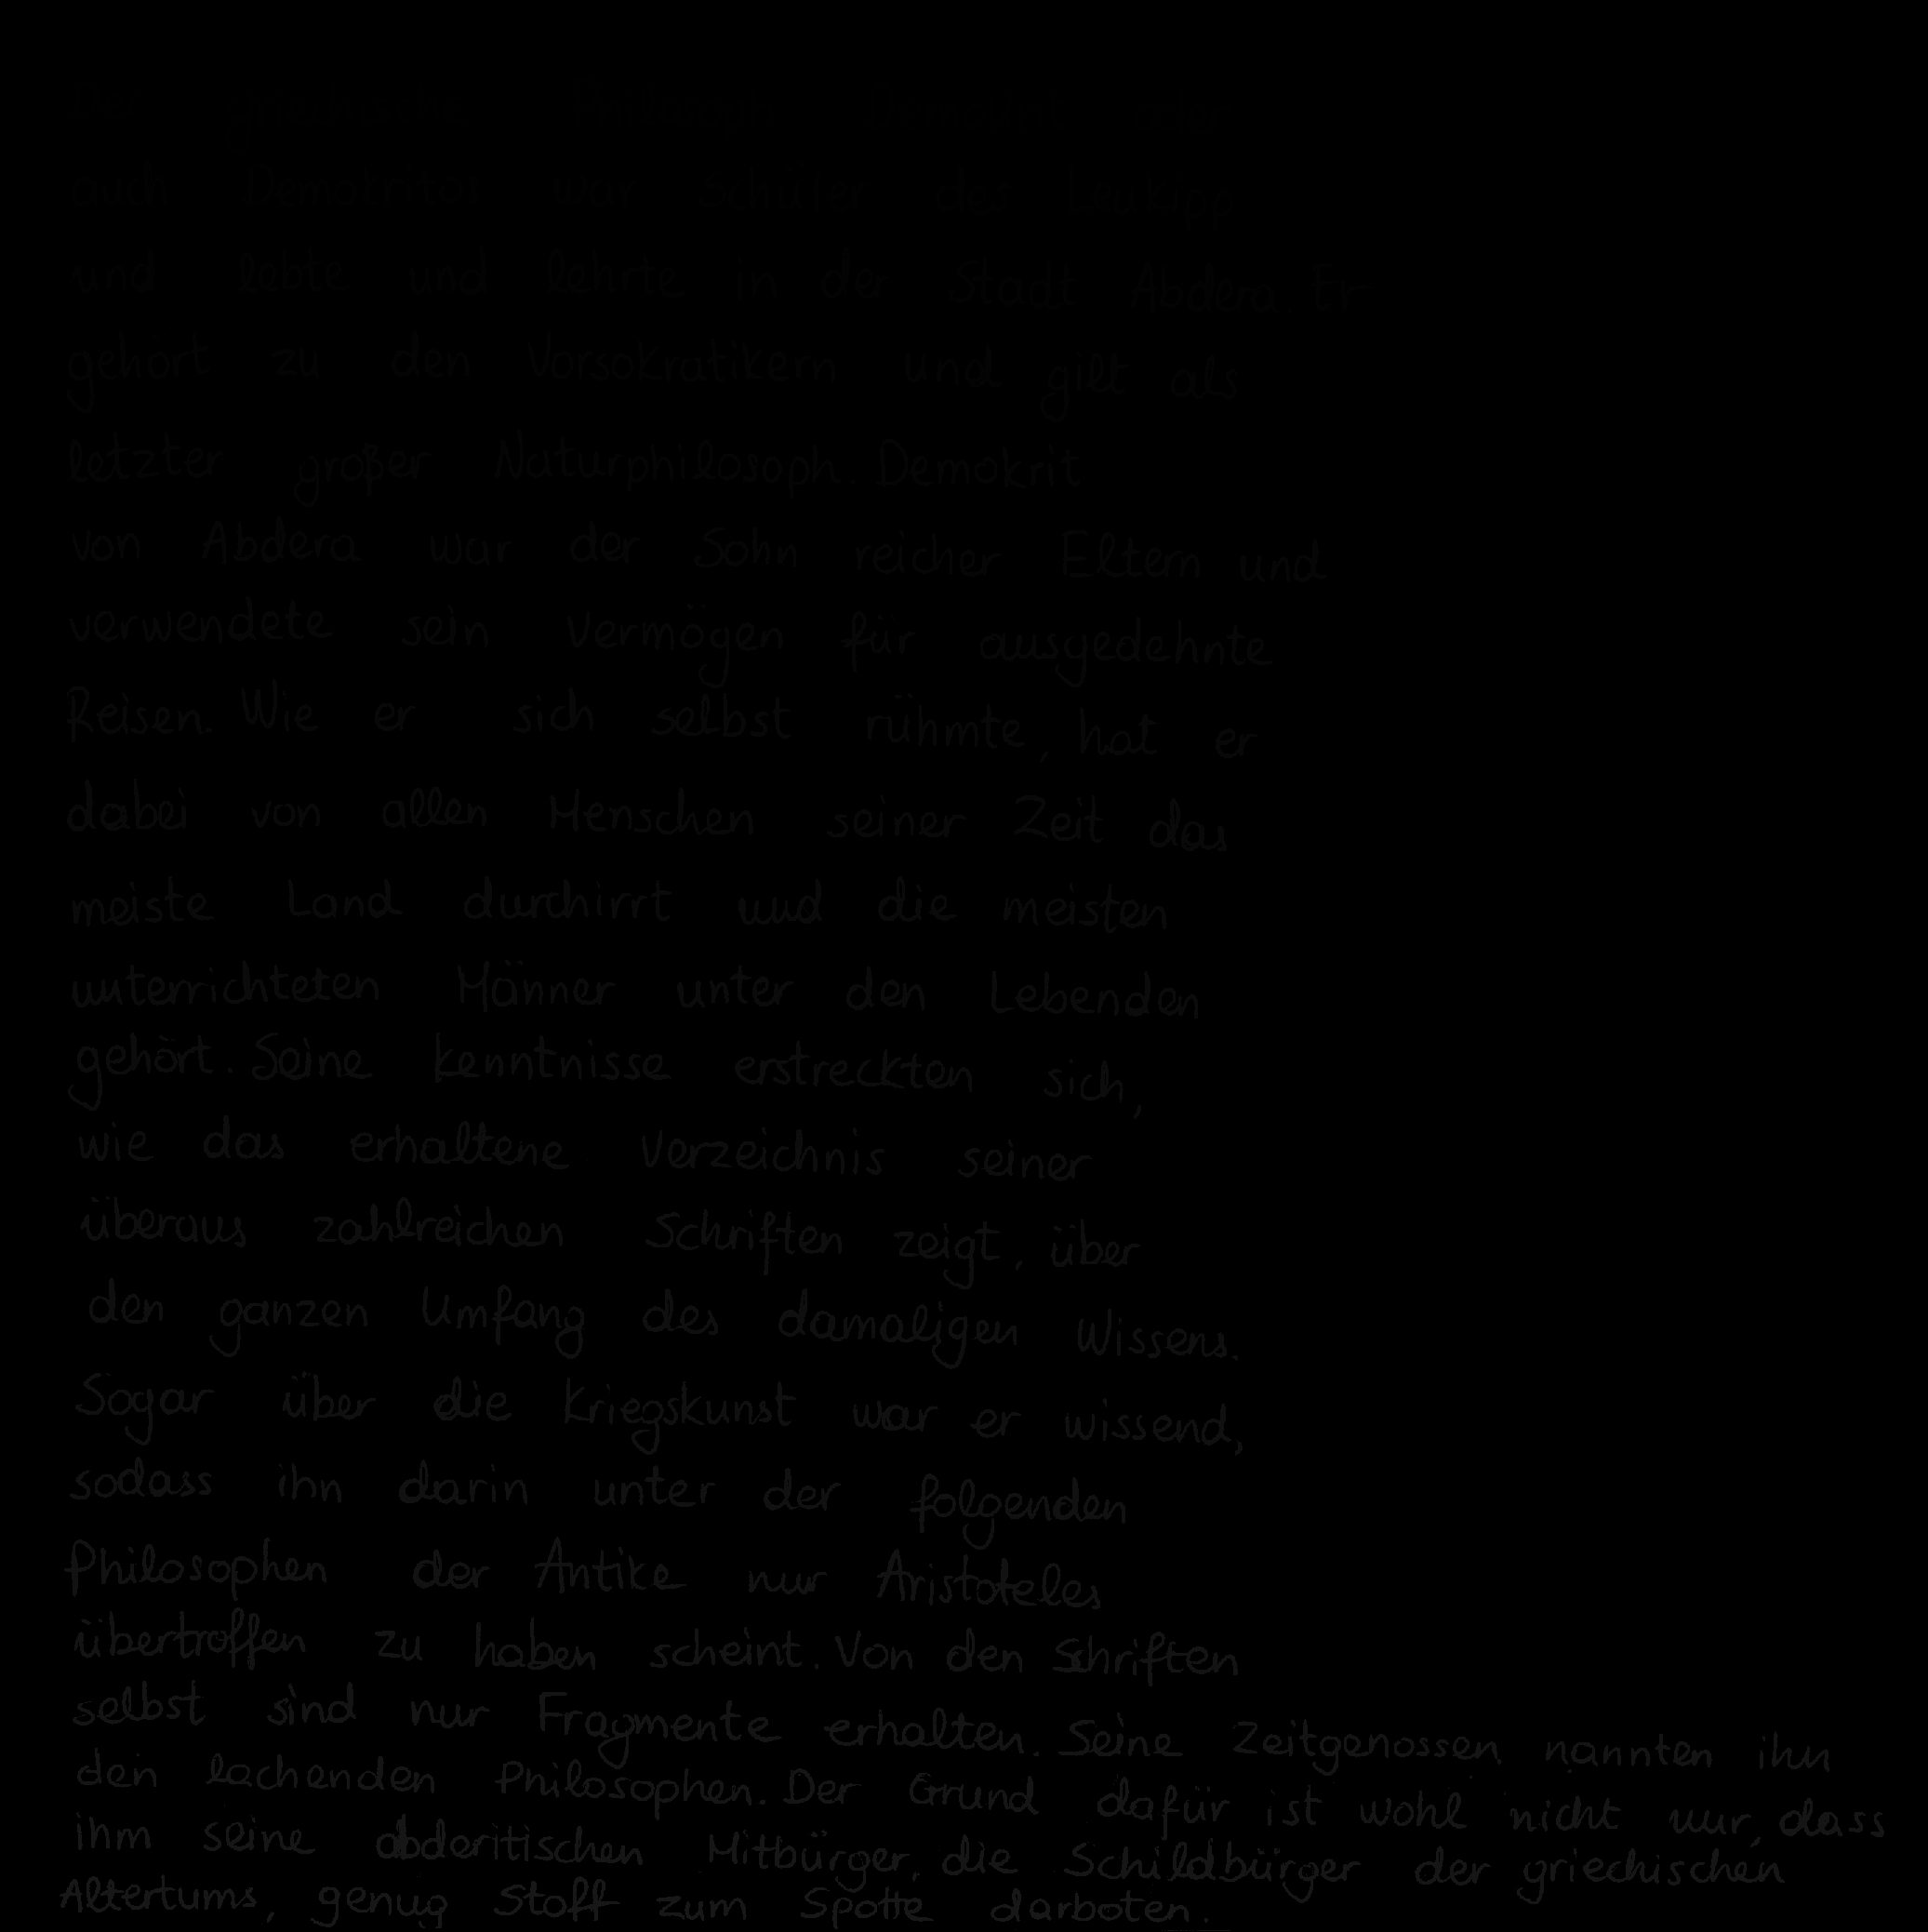 Der griechische Philosoph Demokrit oder
auch Demokritos war Schüler des Leukipp
und lebte und lehrte in der Stadt Abdera. Er
gehört zu den Vorsokratikern und gilt als
letzter großer Naturphilosoph. Demokrit
von Abdera war der Sohn reicher Eltern und
verwendete sein Vermögen für ausgedehnte
Reisen. Wie er sich selbst rühmte, hat er
dabei von allen Menschen seiner Zeit das
meiste Land durchirrt und die meisten
unterrichteten Männer unter den Lebenden
gehört. Seine Kenntnisse erstreckten sich,
wie das erhaltene Verzeichnis seiner
überaus zahlreichen Schriften zeigt, über
den ganzen Umfang des damaligen Wissens.
Sogar über die Kriegskunst war er wissend,
sodass ihn darin unter der folgenden
Philosophen der Antike nur Aristoteles
übertroffen zu haben scheint. Von den Schriften
selbst sind nur Fragmente erhalten. Seine Zeitgenossen nannten ihn
den lachenden Philosophen. Der Grund dafür ist wohl nicht nur, dass
ihm seine abderitischen Mitbürger, die Schildbürger der griechischen
Altertums, genug Stoff zum Spotte darboten.